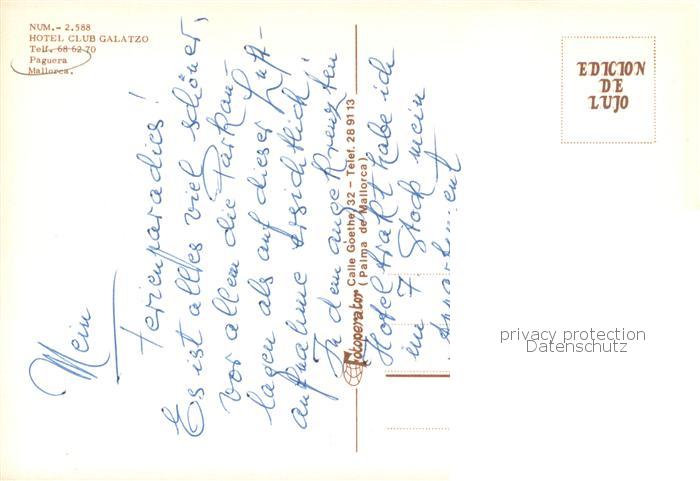 NUM.- 2.588
HOTEL CLUB GALATZO
Telf. 68 62 70
Paguera
Mallorca.
EDICION
DE
LUJO
Mein
Ferienparadies!
Es ist alles viel schöner,
vor allem die Parkan-
lagen als auf dieser Luft-
aufnahme ersichtlich!
In dem angekreuzten
Fotoperator Calle Goethe, 32 - Telef. 28 91 13
(Palma de Mallorca)
Hoteltrakt habe ich
im 7. Stock mein
Appartement
privacy protection
Datenschutz